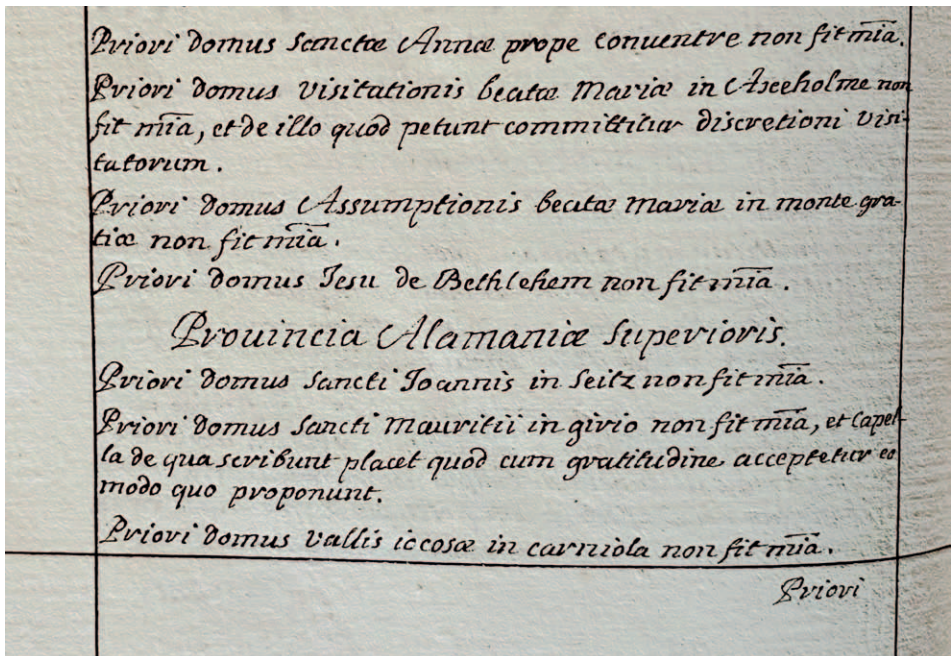 Priori domus sanctæ Annæ prope conuentre non fit mīa.
Priori domus visitationis beatæ Mariæ in Axeholme non
fit mīa, et de illo quod petunt committitur discretioni visi-
tatorum.
Priori domus Assumptionis beatæ Mariæ in monte gra-
tiæ non fit mīa.
Priori domus Jesu de Bethlehem non fit mīa.
Prouincia Alamaniæ Superioris.
Priori domus sancti Joannis in Seitz non fit mīa.
Priori domus sancti Mauritii in girio non fit mīa, et capel-
la de qua scribunt placet quod cum gratitudine acceptetur eo
modo quo proponunt.
Priori domus vallis iccosæ in carniola non fit mīa.
Priori